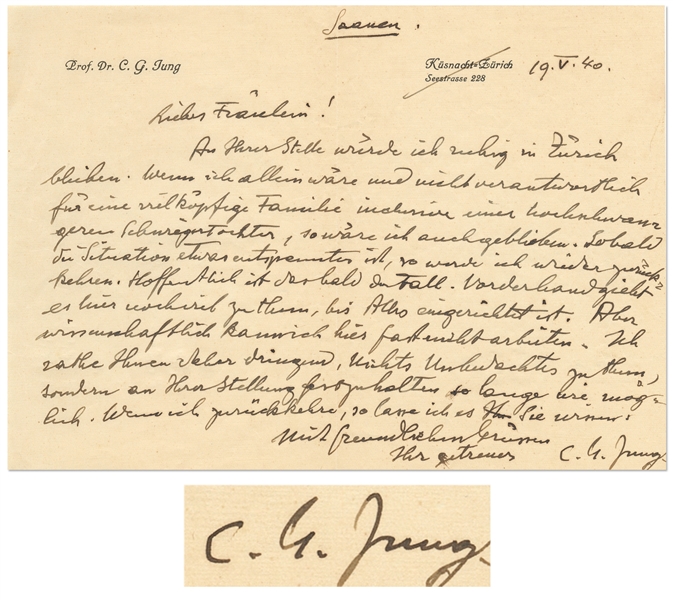 Saanen.
Prof. Dr. C. G. Jung
Küsnacht-Zürich
Seestrasse 228
19.V.40.
Liebes Fräulein!
An Ihrer Stelle würde ich ruhig in Zürich
bleiben. Wenn ich allein wäre und nicht verantwortlich
für eine vielköpfige Familie inclusive einer hochschwan=
geren Schwiegertochter, so wäre ich auch geblieben. Sobald
die Situation etwas entspannter ist, so werde ich wieder zurück=
kehren. Hoffentlich ist das bald der Fall. Vorderhand giebt
es hier noch viel zu thun, bis Alles eingerichtet ist. Aber
wissenschaftlich kann ich hier fast nicht arbeiten. Ich
rathe Ihnen daher dringend, Nichts Unbedachtes zu thun,
sondern an Ihrer Stellung festzuhalten so lange wie mög=
lich. Wenn ich zurückkehre, so lasse ich es Sie wissen.
Mit freundlichen Grüssen
Ihr getreuer C. G. Jung.
C. G. Jung.